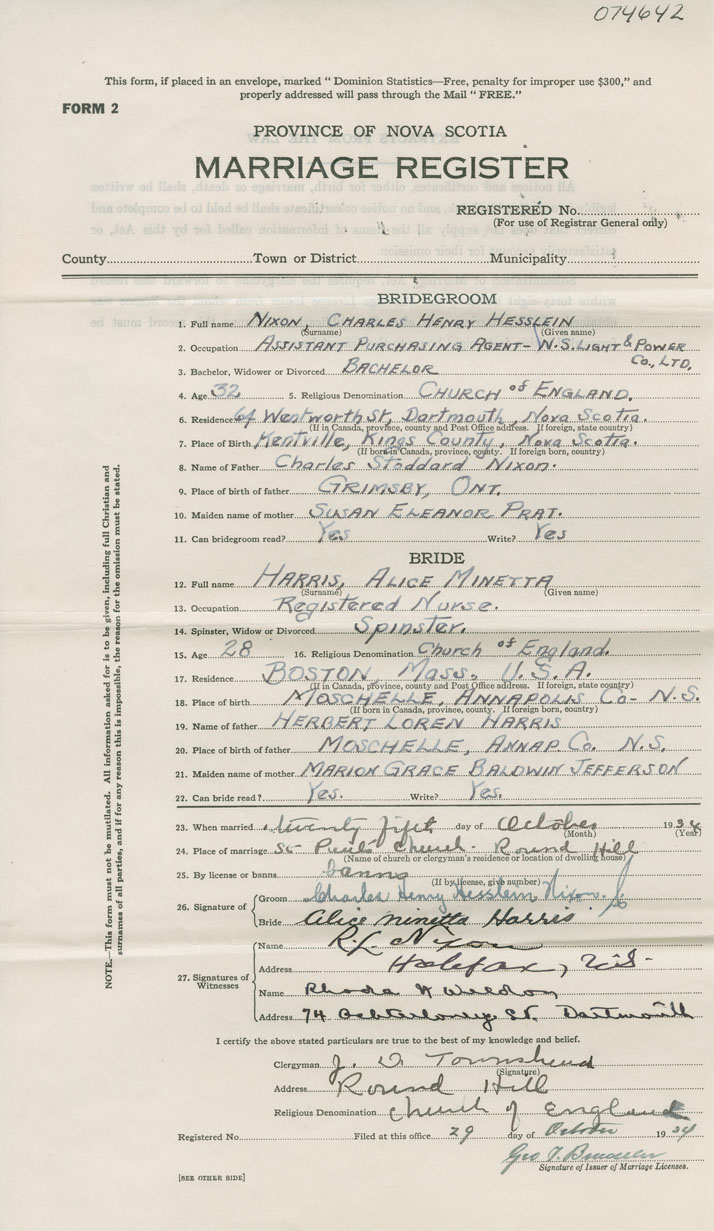 074642
This form, if placed in an envelope, marked "Dominion Statistics—Free, penalty for improper use $300," and
properly addressed will pass through the Mail "FREE."
FORM 2
PROVINCE OF NOVA SCOTIA
MARRIAGE REGISTER
REGISTERED No.
(For use of Registrar General only)
County Town or District Municipality
BRIDEGROOM
1. Full name NIXON, CHARLES HENRY HESSLEIN
(Surname) (Given name)
2. Occupation ASSISTANT PURCHASING AGENT- N.S. LIGHT & POWER
CO., LTD.
3. Bachelor, Widower or Divorced BACHELOR
4. Age 32 5. Religious Denomination CHURCH of ENGLAND.
6. Residence 64 Wentworth St, Dartmouth, Nova Scotia.
(If in Canada, province, county and Post Office address. If foreign, state country)
7. Place of Birth Kentville, Kings County, Nova Scotia.
(If born in Canada, province, county. If foreign born, country)
8. Name of Father Charles Stoddard Nixon.
9. Place of birth of father GRIMSBY, ONT.
10. Maiden name of mother SUSAN ELEANOR PRAT.
11. Can bridegroom read? Yes Write? Yes
BRIDE
12. Full name HARRIS, ALICE MINETTA
(Surname) (Given name)
13. Occupation Registered Nurse.
14. Spinster, Widow or Divorced Spinster.
15. Age 28 16. Religious Denomination Church of England.
17. Residence BOSTON, Mass. U.S.A.
(If in Canada, province, county and Post Office address. If foreign, state country)
18. Place of birth MOSCHELLE, ANNAPOLIS CO- N.S.
(If born in Canada, province, county. If foreign born, country)
19. Name of father HERBERT LOREN HARRIS
20. Place of birth of father MOSCHELLE, ANNAP CO. N.S.
21. Maiden name of mother MARION GRACE BALDWIN JEFFERSON
22. Can bride read? Yes. Write? Yes.
23. When married twenty fift day of October 1934
(Month) (Year)
24. Place of marriage St Paul's Church- Round Hill
(Name of church or clergyman's residence or location of dwelling house)
25. By license or banns Banns
(If by license, give number)
26. Signature of
Groom Charles Henry Hesslein Nixon.
Bride Alice Minetta Harris
27. Signatures of Witnesses
Name R.L. Nixon
Address Halifax, N.S.
Name Rhoda H Weldon
Address 74 St. Dartmouth
I certify the above stated particulars are true to the best of my knowledge and belief.
Clergyman J. D Townshend
(Signature)
Address Round Hill
Religious Denomination Church of England
Registered No. Filed at this office 29 day of October 1934
Geo F.
Signature of Issuer of Marriage Licenses.
[SEE OTHER SIDE]
NOTE.—This form must not be mutilated. All information asked for is to be given, including full Christian and
surnames of all parties, and if for any reason this is impossible, the reason for the omission must be stated.